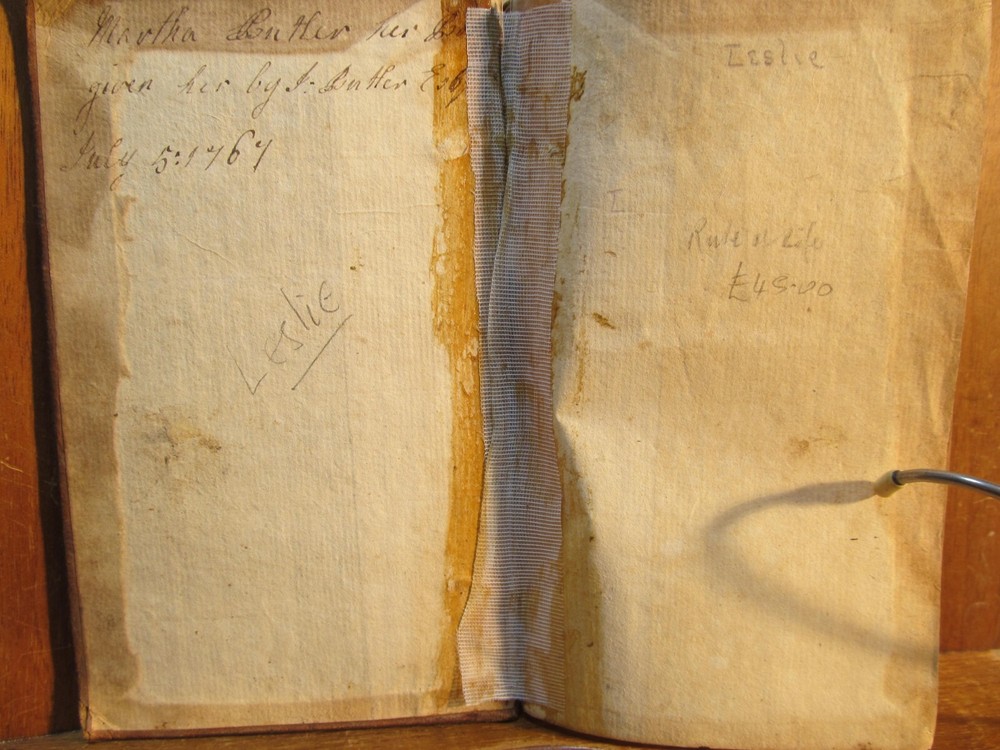 Martha Butler her Bo
given her by J: Butler Esq
July 5: 1767
Leslie
Leslie
I
Rule of Life
£45.00